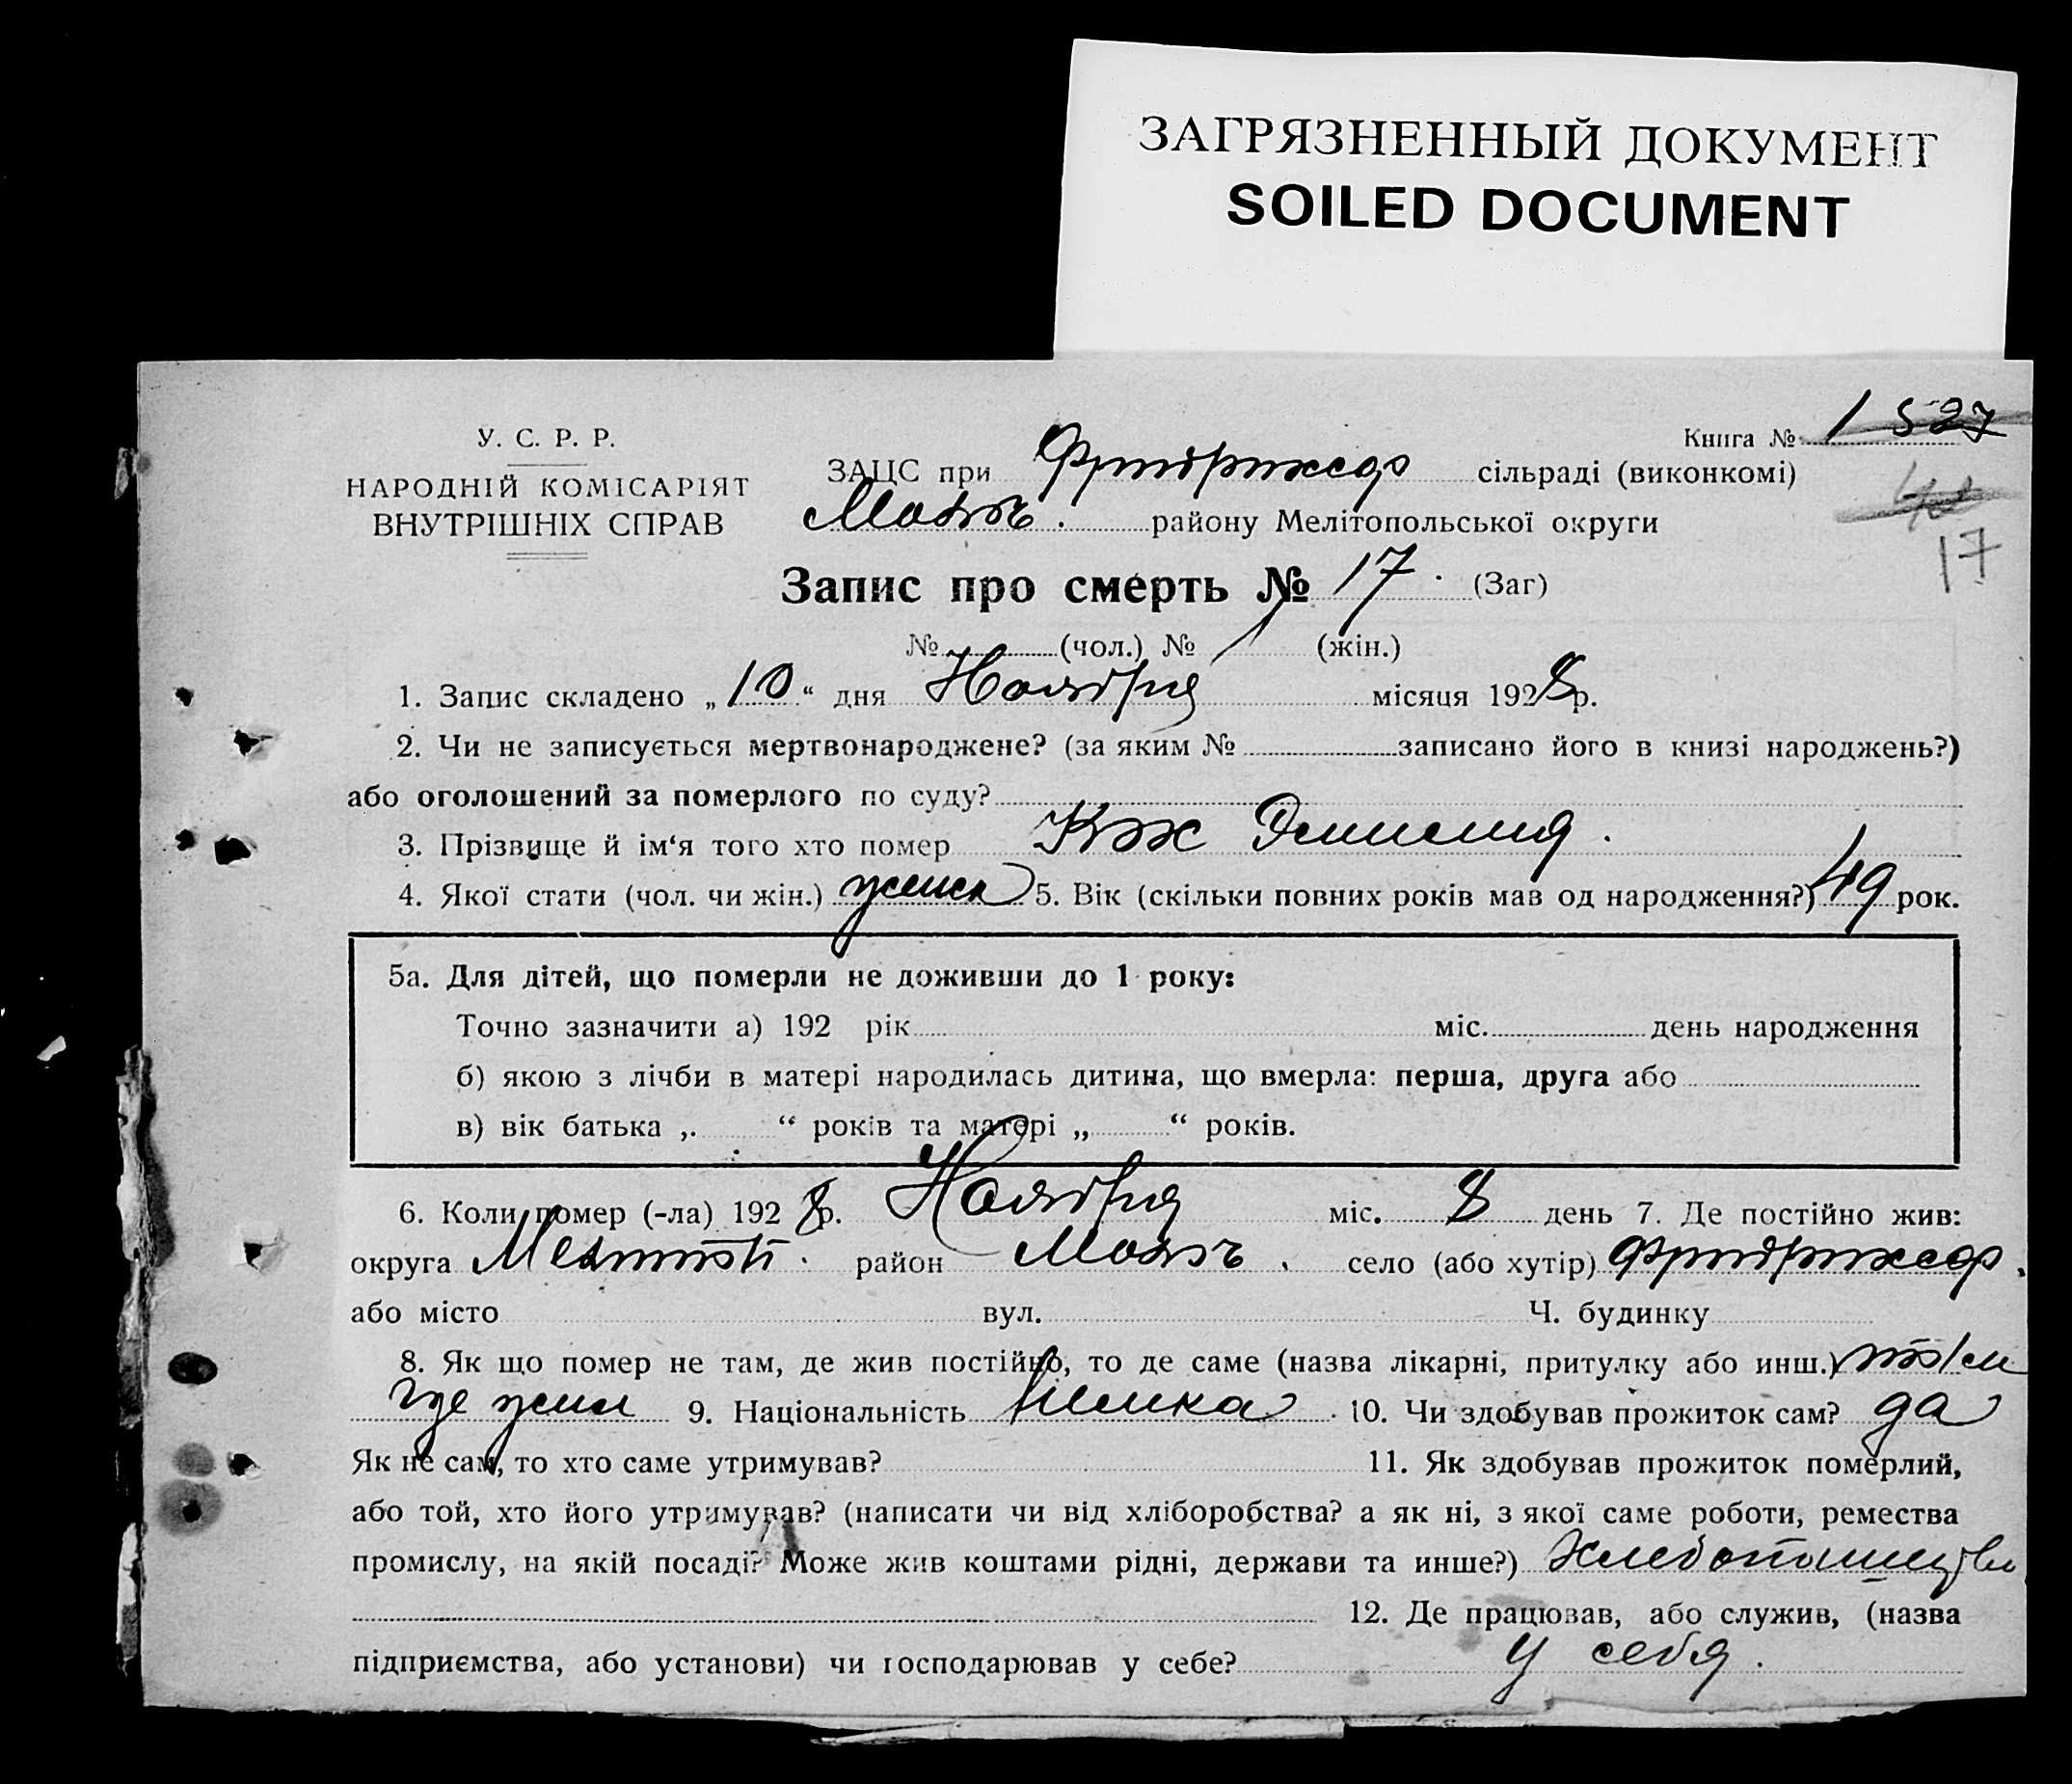 ЗАГРЯЗНЕННЫЙ ДОКУМЕНТ
SOILED DOCUMENT
У. С. Р. Р.
НАРОДНІЙ КОМІСАРІЯТ
ВНУТРІШНІХ СПРАВ
Книга № 1 527
ЗАЦС при сільраді (виконкомі)
району Мелітопольської округи
17
Запис про смерть № 17. (Заг)
№ (чол.) № 1 (жін.)
1. Запис складено „10“ дня Ноября місяця 1928 р.
2. Чи не записується мертвонароджене? (за яким № записано його в книзі народжень?)
або оголошений за померлого по суду?
3. Прізвище й ім‘я того хто помер
4. Якої стати (чол. чи жін.) 5. Вік (скільки повних років мав од народження?) 49 рок.
5а. Для дітей, що померли не доживши до 1 року:
Точно зазначити а) 192 рік міс. день народження
б) якою з лічби в матері народилась дитина, що вмерла: перша, друга або
в) вік батька „ “ років та матері „ “ років.
6. Коли помер (-ла) 1928 р. Ноября міс. 8 день 7. Де постійно жив:
округа район село (або хутір)
або місто вул. Ч. будинку
8. Як що помер не там, де жив постійно, то де саме (назва лікарні, притулку або инш.)
где жил 9. Національність Немка 10. Чи здобував прожиток сам? да
Як не сам, то хто саме утримував? 11. Як здобував прожиток померлий,
або той, хто його утримував? (написати чи від хліборобства? а як ні, з якої саме роботи, ремества
промислу, на якій посаді? Може жив коштами рідні, держави та инше?)
12. Де працював, або служив, (назва
підприємства, або установи) чи господарював у себе? У себя.